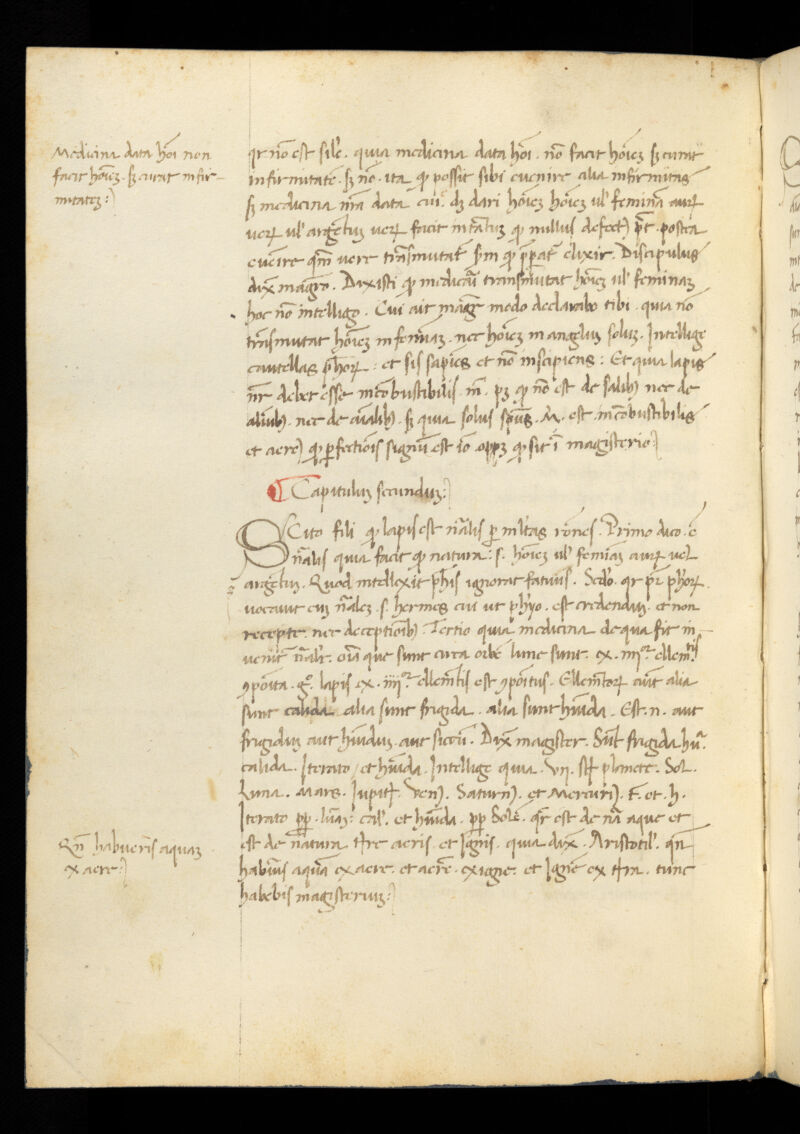 Medicina data hoi non
facit hoiez. sz curat infir-
mitatez:
qr no est sile. quia medicina data hoi. no facit hoiez sz curat
infirmitate. sz no. ita qp possit sibi euenire alia infirmitas
sz medicina nra data cui dz dari hoiez hoiez ul' femina aurz
uerz ul' argetuz uerz facit intatuz qp nullus defect) pt. postea
euenire qm uere transmutat sm qp ppat' elixir. Discipulus
dix magro. Dixisti qp medicia transmutat hoiez ul' feminaz
hoc no intelligo. Cui ait magr modo declarabo tibi. quia no
transmutat hoiez in feminaz. nec hoiez in angeluz soluz. Intellige
cautellas phorz: et sis sapies et no insipiens: Et quia lapis
nr debet esse incobustibilis. pz qp no est de salib) nec de
aliuib). nec de aialib). sz quia solus spus. M. est incobustibilis
et aere) qp pfectiois signu est io oppz qp sit i magisterio:
Capituluz secunduz:
SCito fili qp lapis est nalis p mltas roes. Primo dico. e
nalis quia facit qp natura: s. hoiez ul' feminaz aurz uel
argetuz. Quod intellexit phis ignorat fatuus. Scdo. qr pri phorz.
uocauit euz nalez. s. hermes cui ut phyo. est credendum. et non
recepte. nec deceptioib) Tertio quia medicina de qua fit in-
uenit nalr. oia que sunt circa orbe lune sunt. ex. iiijor ellemtis
9posita. go. lapis ex. iiijor ellemtis est 9positus. Ellemtorz aut alia
sunt calida alia sunt frigida. alia sunt humida. Est. n. aut
frigiduz aut humiduz. aut siccu. Dix magister. Sut frigida hu.
calida. Iterato et humida. Intellige quia. Vn. st planete. Sol.
Luna. Mars. Iupit. Ven). Saturn). et Mercuri). F. et. h.
Iterato pp. luna: cal'. et humida. pp Sole. qr est de na aque et
est de natura tre aeris. et Ignis. quia dix. Aristotil'. qn
habuis aqua ex aere. et aere. ex igne. et Igne ex tra. tunc
habebis magisteriuz:
Qn habueris aquaz
ex aere: